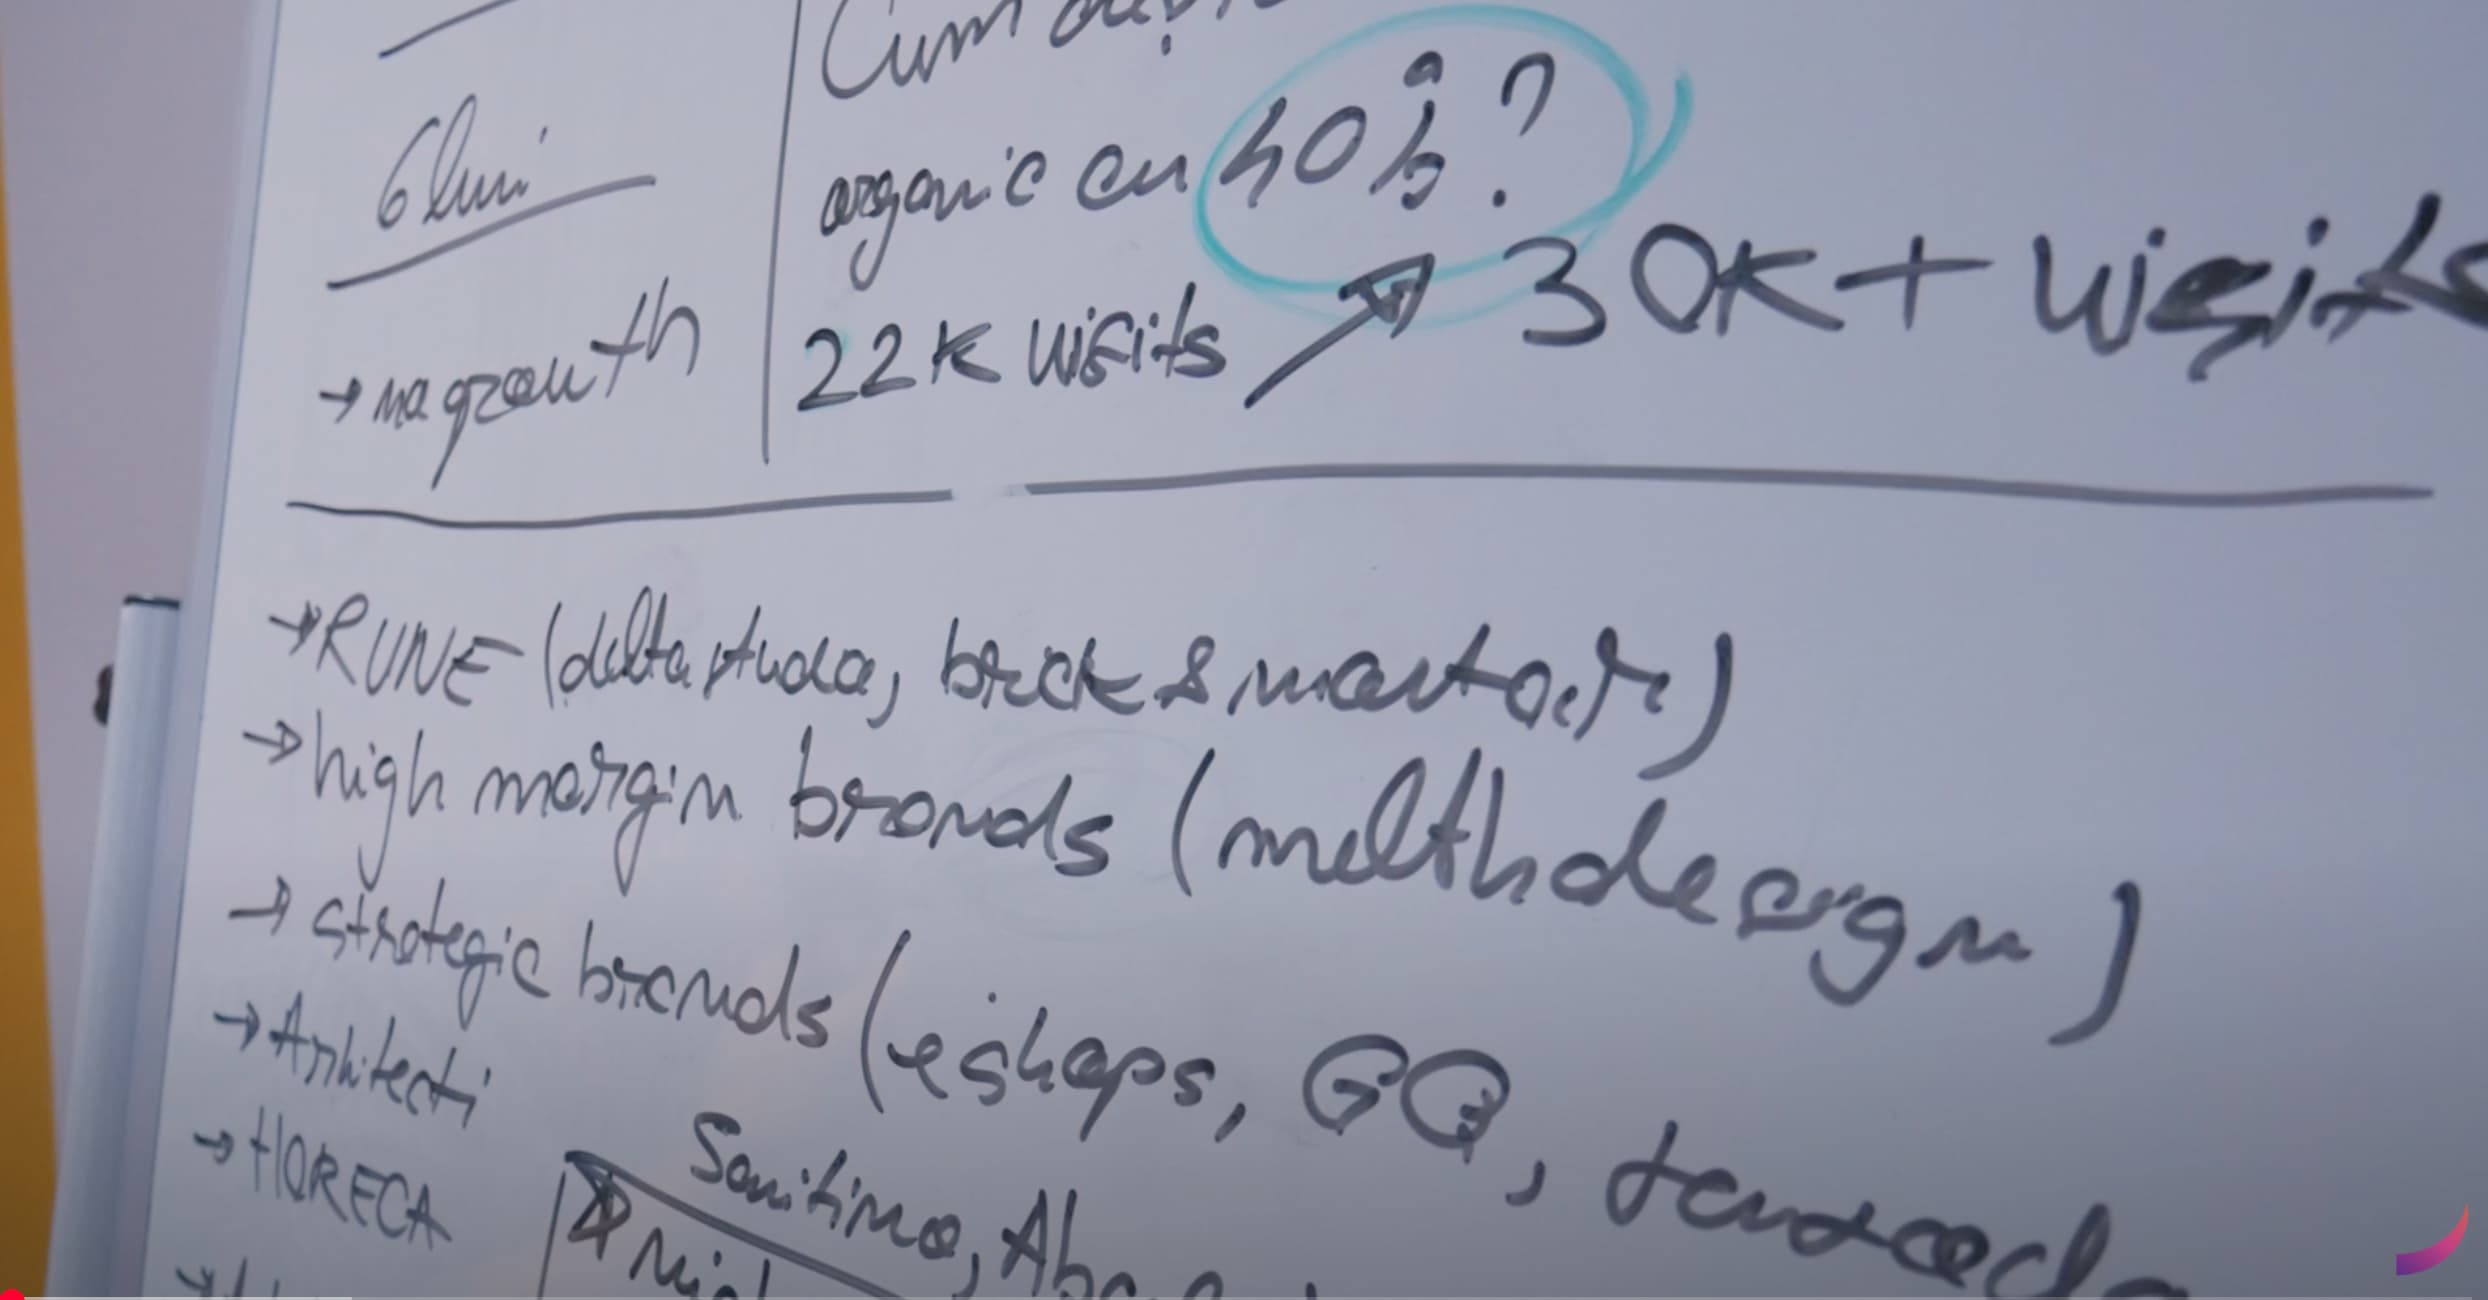 6 luni
→ no growth
Cum
organic cu 40%?
22K visits ↗ 30K+ visits
→ RUNE (delta studio, brick & mortar)
→ high margin brands (
→ strategic brands (eshops, GG,
→ Arhitecti
→ HORECA
Sanitino,